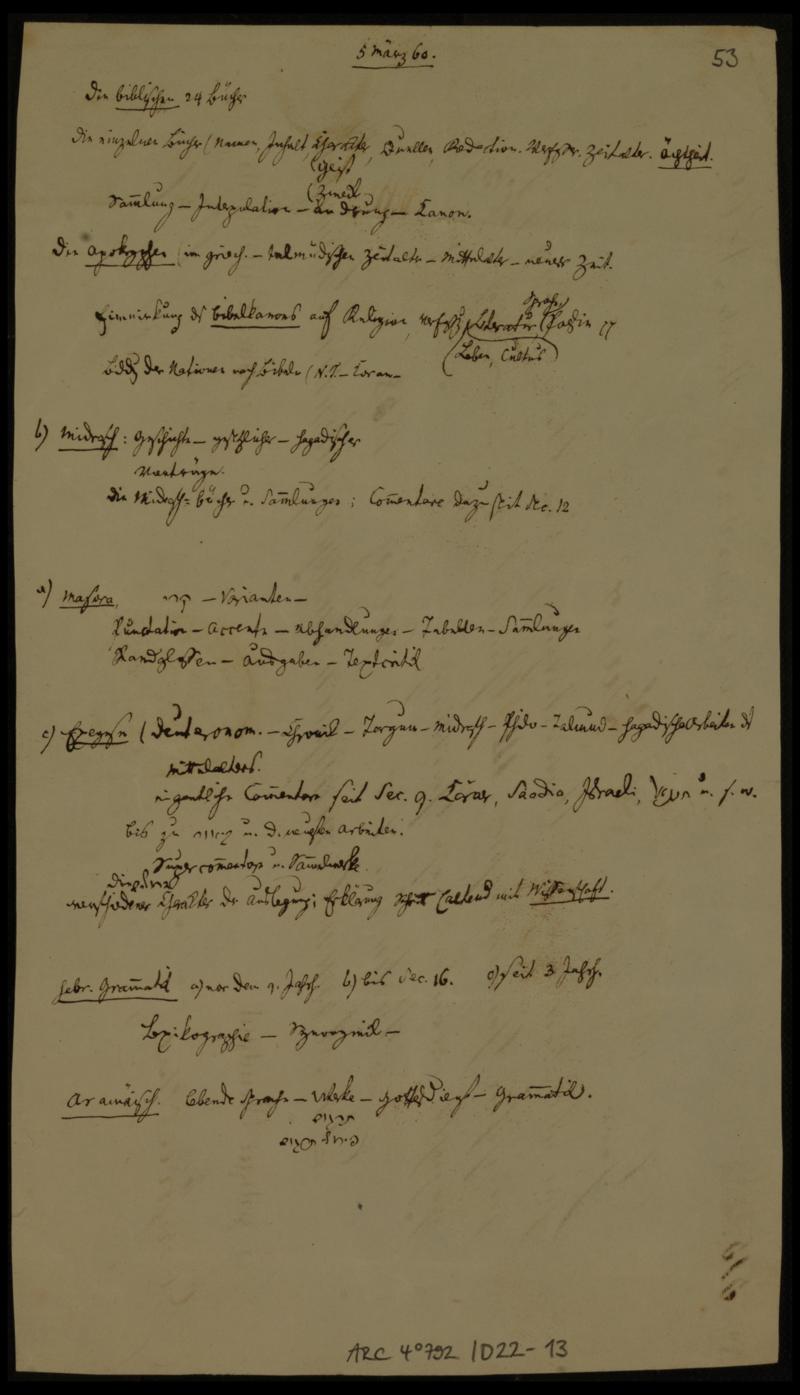 53
5 März 60.
Die biblischen 24 Bücher
Die einzelnen Bücher (Namen, Inhalt, Charakter, Quellen, Redaction. Verfasser. Zeitalter. Ächtheit.
(Geist
(Zweck
Sammlung – Interpolation – Kanon.
Die Apokryphen (im griech. – talmudischen Zeitalter – Mittelalter – neuere Zeit.
Sprache,
Einwirkung des Bibelkanons auf Religion, Literatur, Poesie
(Leben, Cultus)
der Nationen nach Bibeln (N.T. – Koran –
b) Midrasch: Geschichte – gesetzlicher – hagadischer
Vorträge.
die Midrasch-Bücher u. Sammlungen; Commentare dazu seit Sec. 12
a) Masora, – Varianten –
Punctation – Accente – Abhandlungen – Tabellen – Sammlungen
Randglossen – Ausgaben – Textcritik
c) Exegese (Deuteronom. – Chronik – Targum – Midrasch – Philo – Talmud – hagadische Arbeiten des
Mittelalters.
eigentliche Commentare seit Sec. 9. Karäer, Saadia, Israeli, u. s. w.
bis zu u. d. neuesten Arbeiten.
Supercommentare u. Sammelwerke
verschiedener Charakter der Auslegung; Erklärung Schritt haltend mit Wissenschaft.
hebr. Grammatik a) vor dem 9. Jahrh. b) bis Sec. 16. c) seit 3 Jahrh.
Lexikographie – Synonymik –
Aramäisch. lebende Sprache – Werke – Gottesdienst – Grammatik.
ARC 4°792 /D22-13